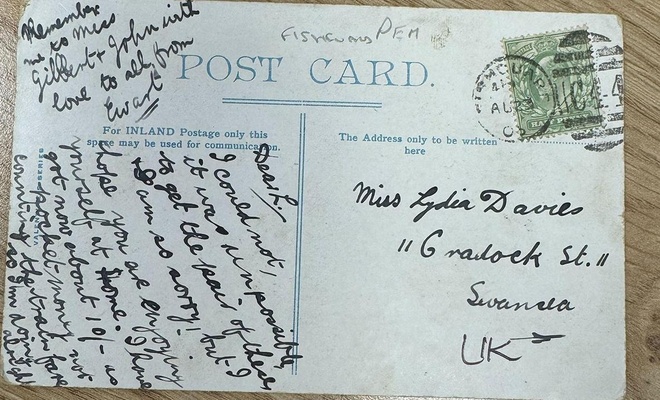 Remember
me to Miss
Gilbert & John with
love to all from
Ewart
FISHGUARD PEM
POST CARD.
For INLAND Postage only this
space may be used for communication.
The Address only to be written
here
Dear L,
I could not,
it was impossible
to get the pair of these,
I am so sorry! but I
hope you are enjoying
yourself at home. I have
got now about 10/- as
pocket money not
counting the train fare
so I'm doing
alright
AU 23
Miss Lydia Davies
11 Cradock St.
Swansea
UK
SERIES